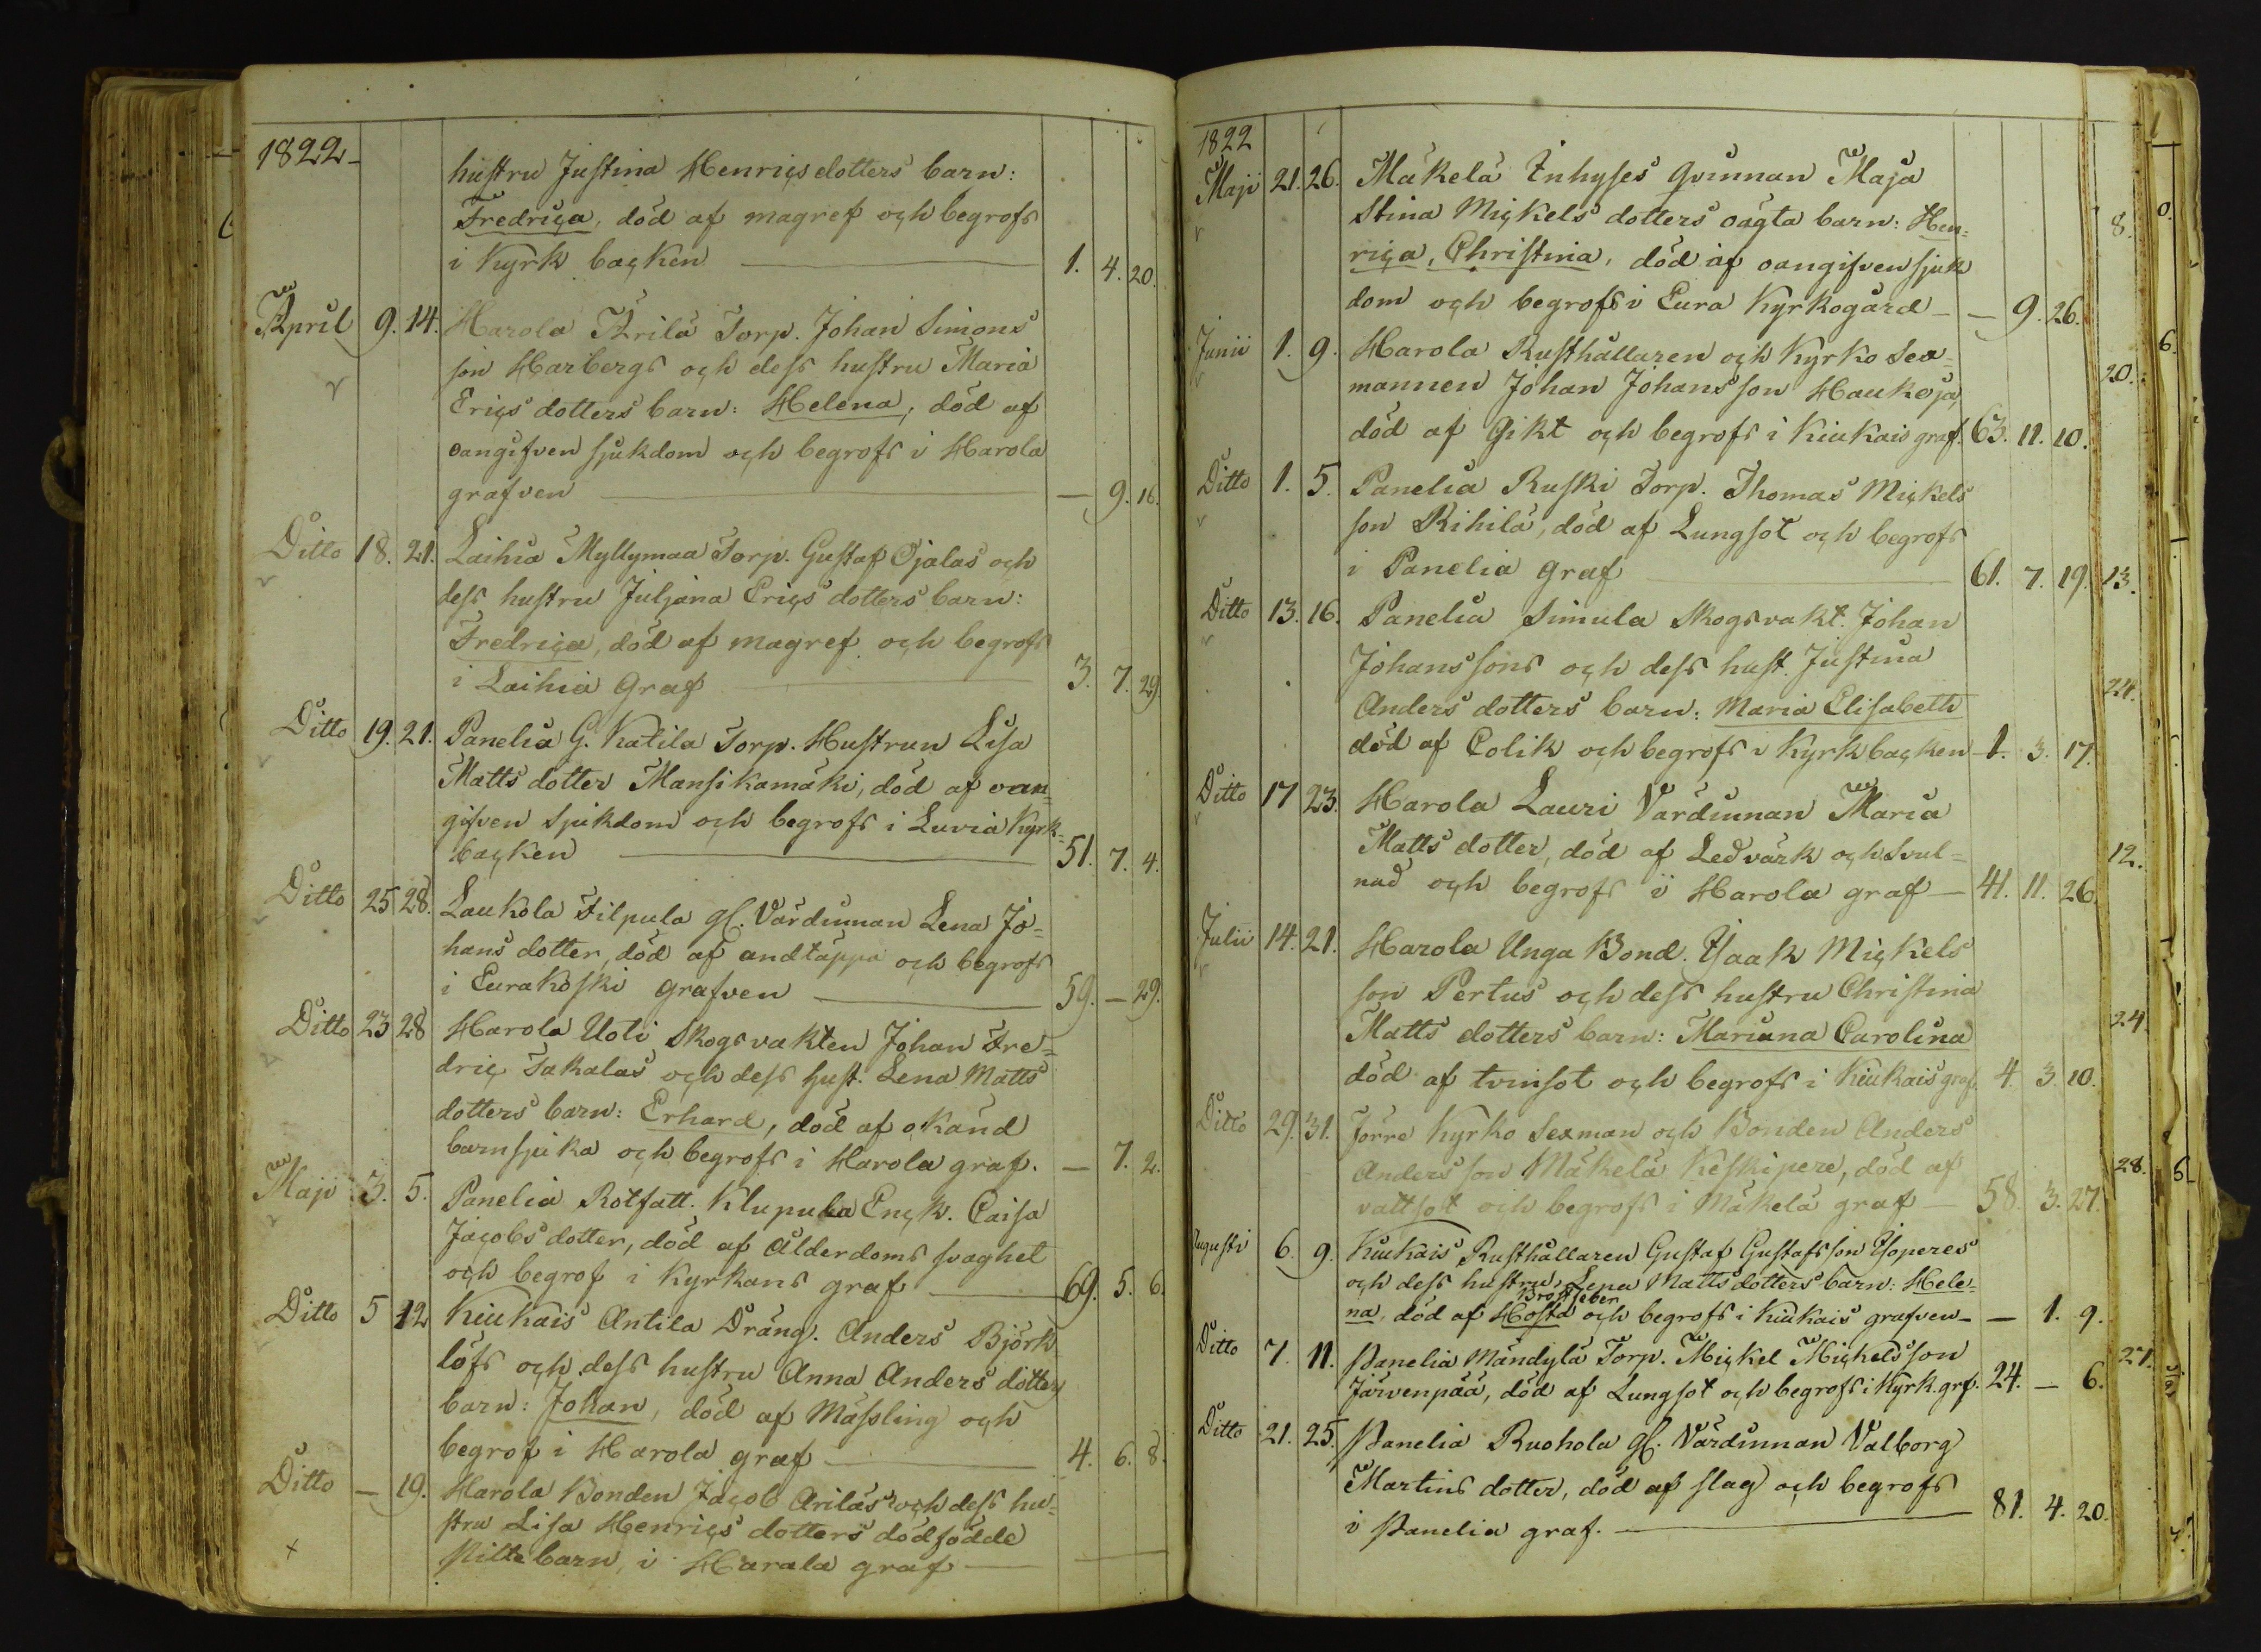 1822
hustru Justina Henriçs dotters barn:
Fredriça, död af magref och begrofs
i Kyrk backen — 1. 4. 20.
April 9. 14. Harola Arilä Torp. Johan Simons
son Harbergs och dess hustru Maria
Eriçs dotters barn: Helena, död af
oangifven sjukdom och begrofs i Harola
grafven — — 9. 16.
Ditto 18. 21. Laihia Myllymaa Torp. Gustaf Ojalas och
dess hustru Juljana Eriçs dotters barn:
Fredriça, död af magref och begrofs
i Laihia Graf — 3. 7. 29.
Ditto 19. 21. Panelia G. Katila Torp. Hustrun Lisa
Matts dotter Mansikamäki, död af oan=
gifven Sjukdom och begrofs i Luvia Kyrk=
backen — 51. 7. 4.
Ditto 25 28. Laukola Filpula gl. Värdinnan Lena Jo=
hans dotter, död af andtäppa och begrofs
i Eurakoski grafven — 59. — 29.
Ditto 23 28 Harola Uoti Skogsvakten Johan Fre=
driç Takalas och dess hust. Lena Matts
dotters barn: Erhard, död af okänd
barnsjuka och begrofs i Harola graf. — 7. 2.
Maji 3. 5. Panelia Rotfatt. Klupula Enck. Caisa
Jacobs dotter, död af Ålderdoms svaghet
och begrof i Kyrkans graf — 69. 5. 6.
Ditto 5 12 Kiukais Antila Dräng. Anders Björk
löfs och dess hustru Anna Anders dotters
barn: Johan, död af Mässling och
begrof i Harola graf — 4. 6. 8.
Ditto — 19. Harola Bonden Jacob Arilas och dess hu=
stru Lisa Henriçs dotters dödfödde
Pilte barn, i Harala graf —
1822
Maji 21. 26. Mäkelä Inhyses Qvinnan Maja
Stina Mickels dotters oägta barn: Hen=
riça, Christina, död af oangifven sjuk
dom och begrofs i Eura Kyrkogård — — 9. 26.
Junii 1. 9. Harola Rusthållaren och Kyrko Sex=
mannen Johan Johansson Haukoja,
död af Gikt och begrofs i Kiukais graf. 63. 11. 10.
Ditto 1. 5. Panelia Ruski Torp. Thomas Mickels
son Rihilä, död af Lungsot och begrofs
i Panelia graf — 61. 7. 19.
Ditto 13. 16. Panelia Simula Skogsvakt. Johan
Johanssons och dess hust. Justina
Anders dotters barn: Maria Elisabeth
död af Colik och begrofs i Kyrkbacken — 1. 3. 17.
Ditto 17 23. Harola Lauri Värdinnan Maria
Matts dotter, död af Ledvärk och Svul=
nad och begrofs i Harola graf — 41. 11. 26.
Julii 14. 21. Harola Unga Bond. Isaak Mickels
son Pertus och dess hustru Christina
Matts dotters barn: Mariana Carolina
död af tvinsot och begrofs i Kiukais graf 4. 3. 10.
Ditto 29. 31. Jörre Kyrko Sexman och Bonden Anders
Anders son Mäkelä Keskipere, död af
vattsot och begrofs i Mäkelä graf — 58. 3. 27.
Augusti 6. 9. Kiukais Rusthållaren Gustaf Gustafsson Isoperes
och dess hustru Lena Matts dotters barn: Hele=
Bröstfeber
na, död af Hosta och begrofs i Kiukais grafven — — 1. 9.
Ditto 7. 11. Panelia Mändylä Torp. Mickel Mickelsson
Järvenpää, död af Lungsot och begrofs i Kyrk. grf. 24. — 6.
Ditto 21. 25. Panelia Ruohola gl. Värdinnan Valborg
Martins dotter, död af slag och begrofs
i Panelia graf. — 81. 4. 20.
8.
20.
13.
24.
12.
24.
28.
27.
0.
6.
6.